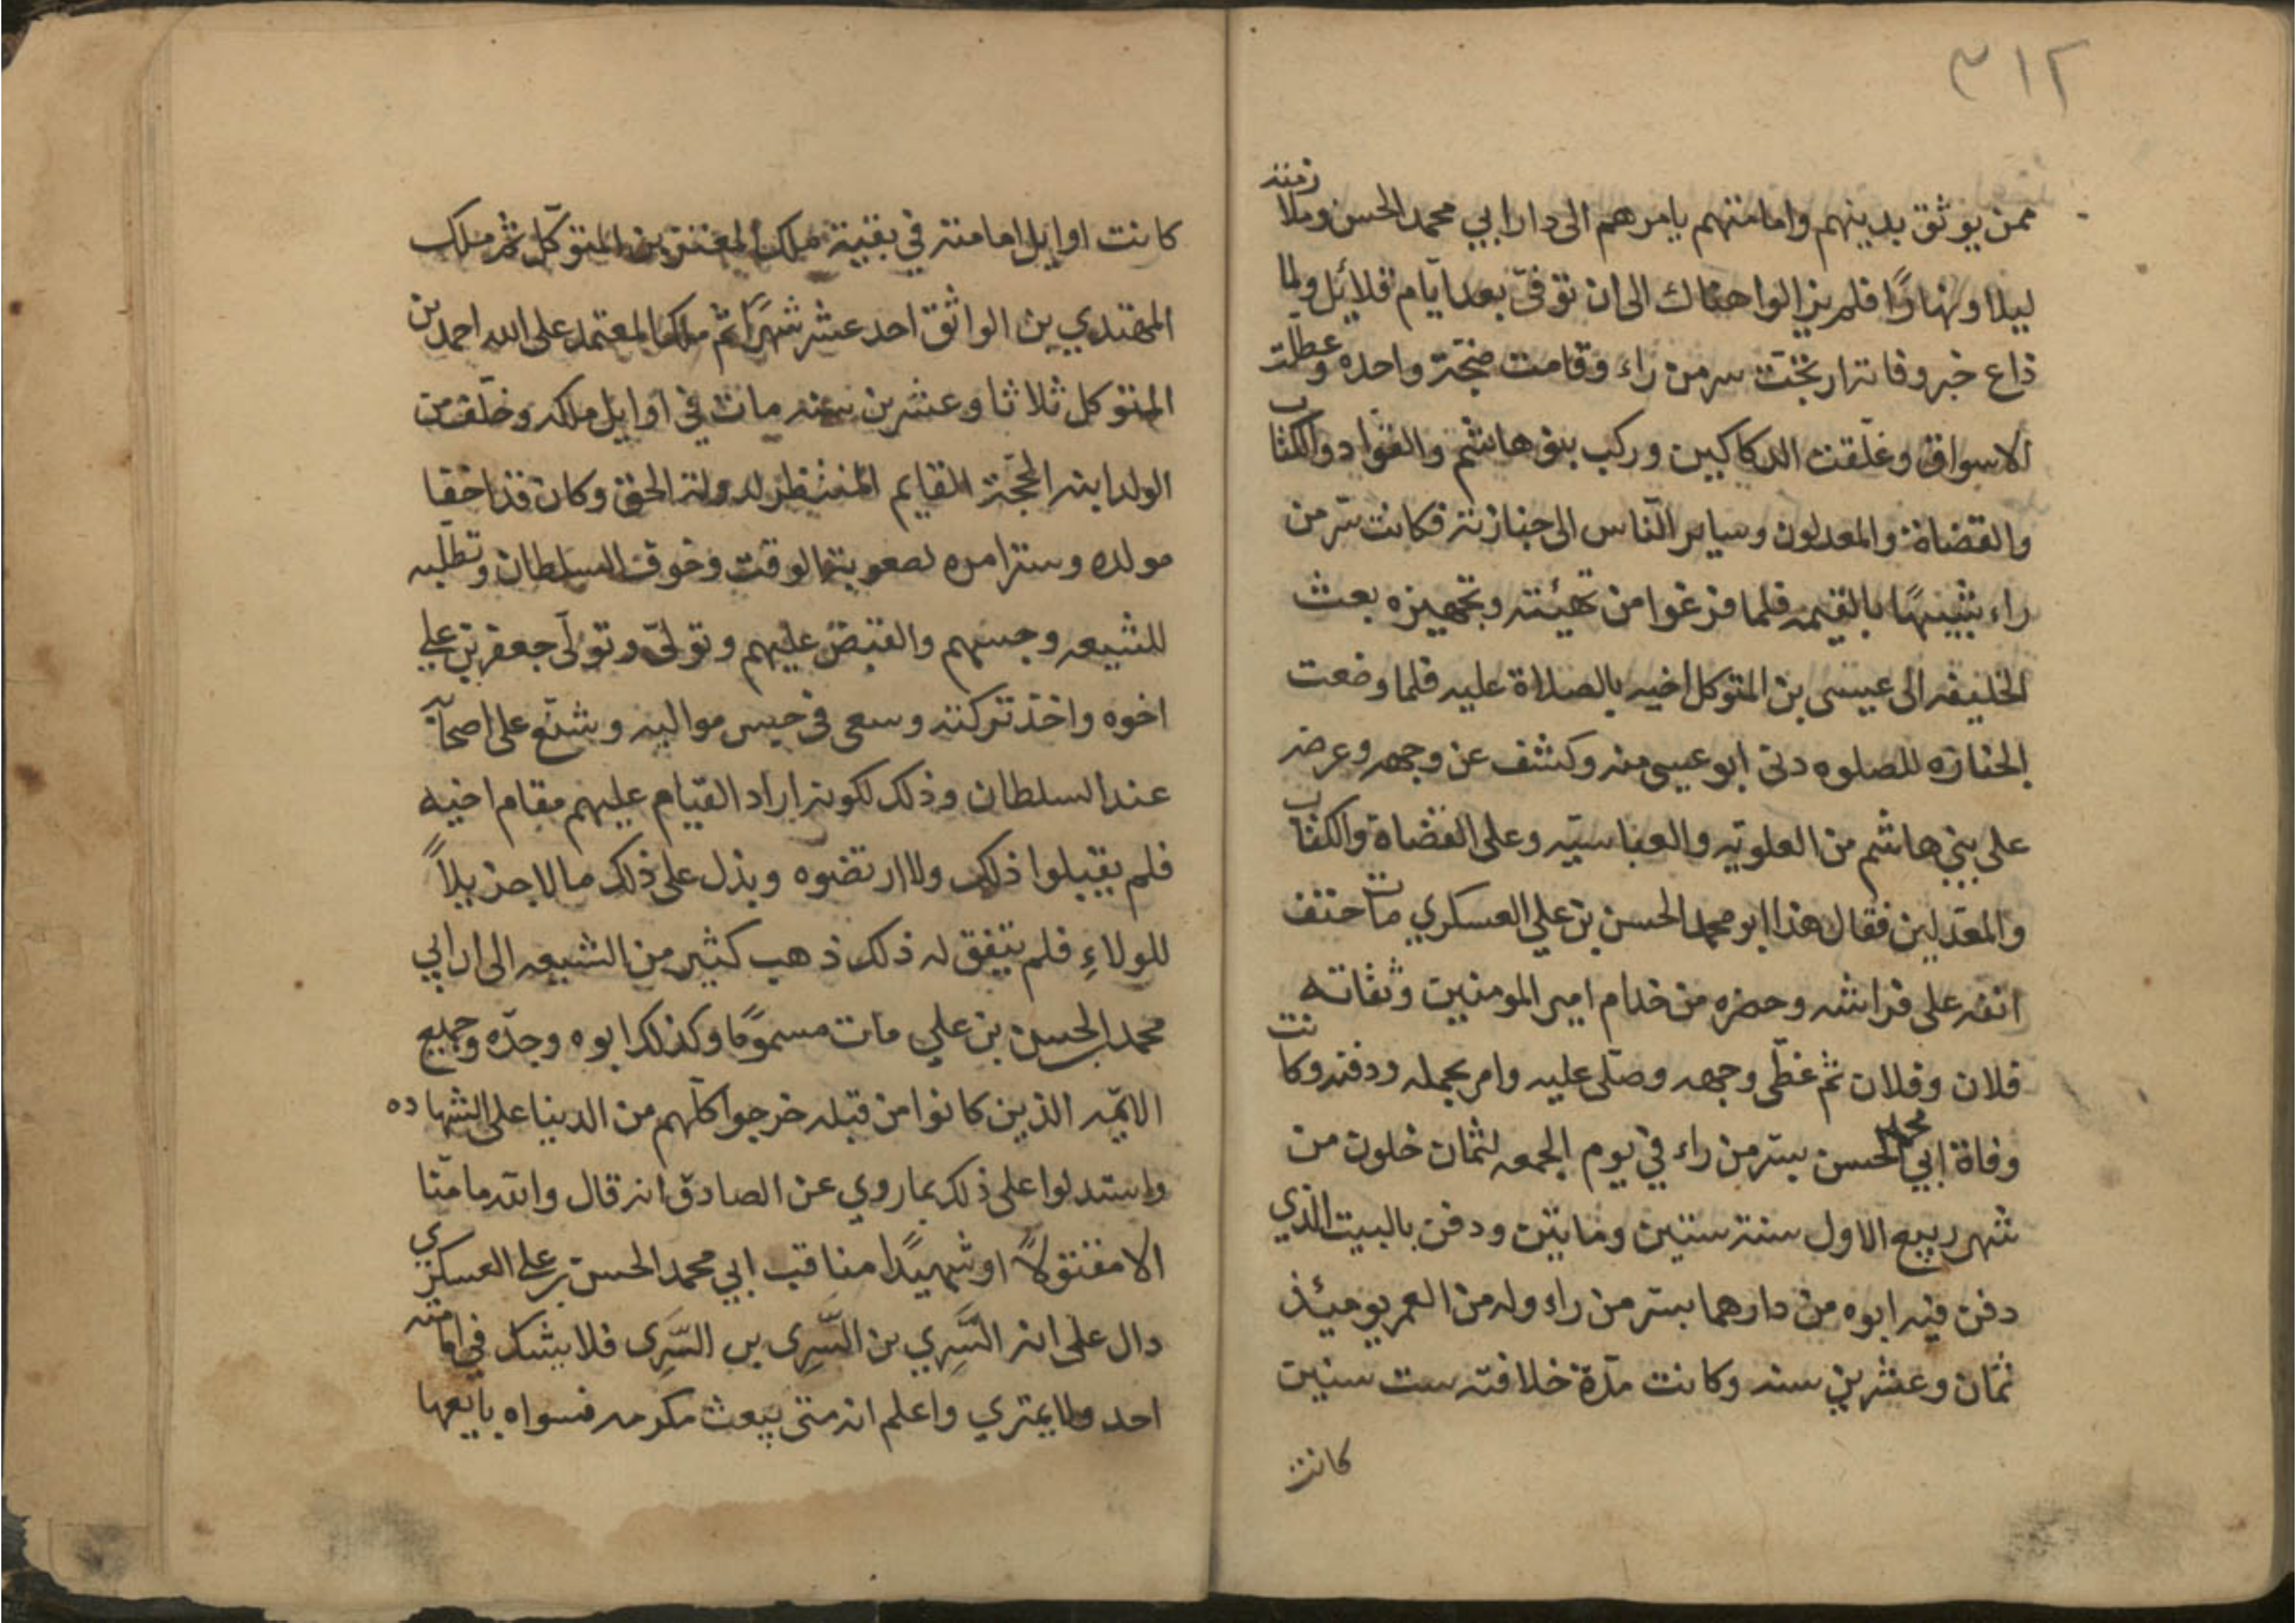 ٣١٢
ممن يوثق بدينهم وامامتهم يامرهم الى دار ابي محمد الحسن وملازمته
ليلا ونهارًا فلم يزالوا هناك الى ان توفى بعد ايام قلائل ولما
ذاع خبر وفاته ارتجت سر من راء وقامت ضجة واحده وعطلت
الاسواق وغلقت الدكاكين وركب بنو هاشم والقواد والكتاب
والقضاة والمعدلون وساير الناس الى جنازته فكانت سر من
راء شبيهًا بالقيمه فلما فرغوا من تهيئته وتجهيزه بعث
الخليفه الى عيسى بن المتوكل اخيه بالصلاة عليه فلما وضعت
الجنازه للصلوه دنى ابو عيسى منه وكشف عن وجهه وعرضه
على بني هاشم من العلويه والعباسيه وعلى القضاة والكتاب
والمعدلين فقال هذا ابو محمد الحسن بن علي العسكري مات حتف
انفه على فراشه وحضره من خدام امير المومنين وثقاته
فلان وفلان ثم غطّى وجهه وصلّى عليه وامر بحمله ودفنه وكانت
وفاة ابي محمد الحسن بسر من راء في يوم الجمعه لثمان خلون من
شهر ربيع الاول سنة ستين ومايتن ودفن بالبيت الذي
دفن فيه ابوه من دارهما بسر من راء وله من العمر يوميئذ
ثمان وعشرين سنه وكانت مدّة خلافته ست سنين
كانت
كانت اوايل امامته في بقية ملك المعتز بن المتوكّل ثم ملك
المهتدي بن الواثق احد عشر شهرًا ثم ملك المعتمد على الله احمد بن
المتوكل ثلاثا وعشرين سنه مات في اوايل ملكه وخلّف من
الولد ابنه الحجّة القايم المنتظر لدولة الحق وكان قد اخفا
مولده وستر امره لصعوبة الوقت وخوف السلطان وتطلّبه
للشيعه وحبسهم والقبض عليهم وتولّى وتولّى جعفر بن علي
اخوه واخذ تركته وسعى في حبس مواليه وشنّع على اصحابه
عند السلطان وذلك لكونه اراد القيام عليهم مقام اخيه
فلم يقبلوا ذلك ولا ارتضوه وبذل على ذلك مالا جزيلاً
للولاءِ فلم يتفق له ذلك ذهب كثير من الشيعه الى ان ابي
محمد الحسن بن علي مات مسمومًا وكذلك ابوه وجدّه وجميع
الايمّه الذين كانوا من قبله خرجوا كلّهم من الدينا على الشهاده
واستدلوا على ذلك بما روي عن الصادق انه قال والله ما منّا
الا مقتولاً او شهيدًا مناقب ابي محمد الحسن بن علي العسكري
دال على انه السَّرِي بن السَّرِى بن السَّرِى فلا يشك في امامته
احد ولا يمتري واعلم انه متى بيعت مكرمه فسواه بايعها